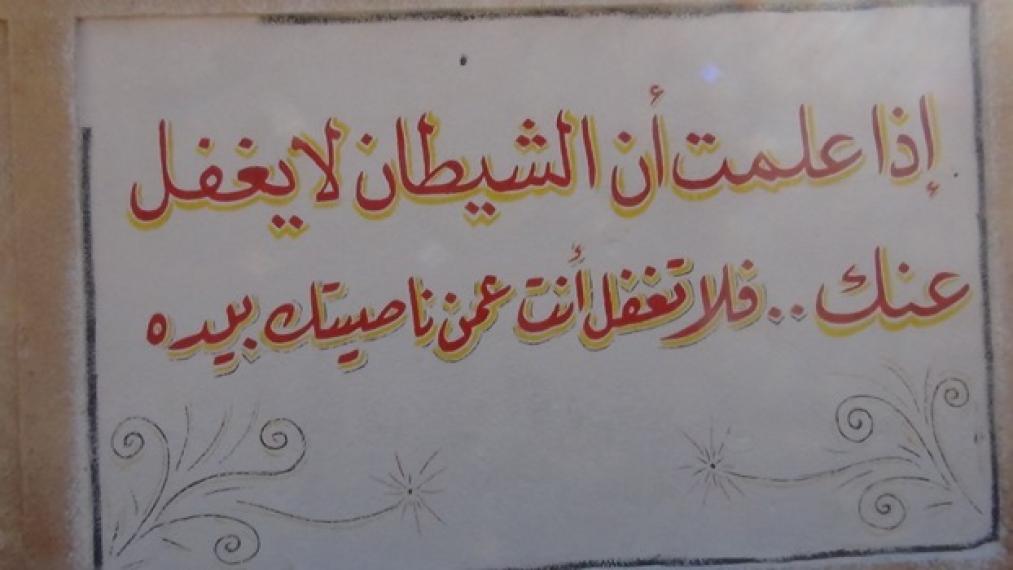 إذا علمت أن الشيطان لا يغفل
عنك .. فلا تغفل أنت عمن ناصيتك بيده